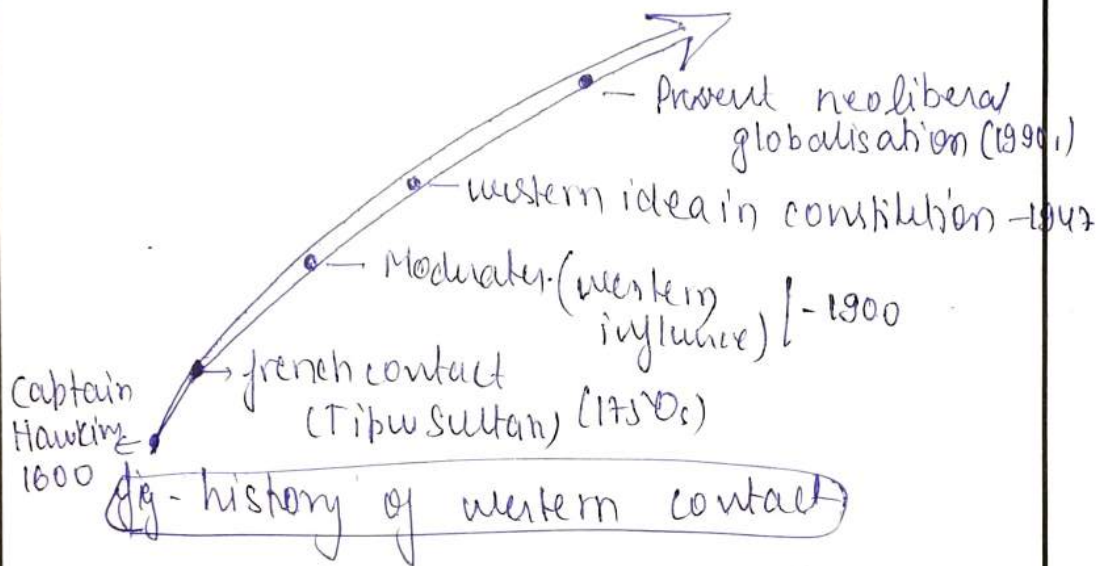 Present neoliberal
globalisation (1990s)
western idea in constitution - 1947
Moderates (western
influence) - 1900
french contact
(Tipu Sultan) (1750s)
Captain
Hawkins
1600
fig - history of western contact